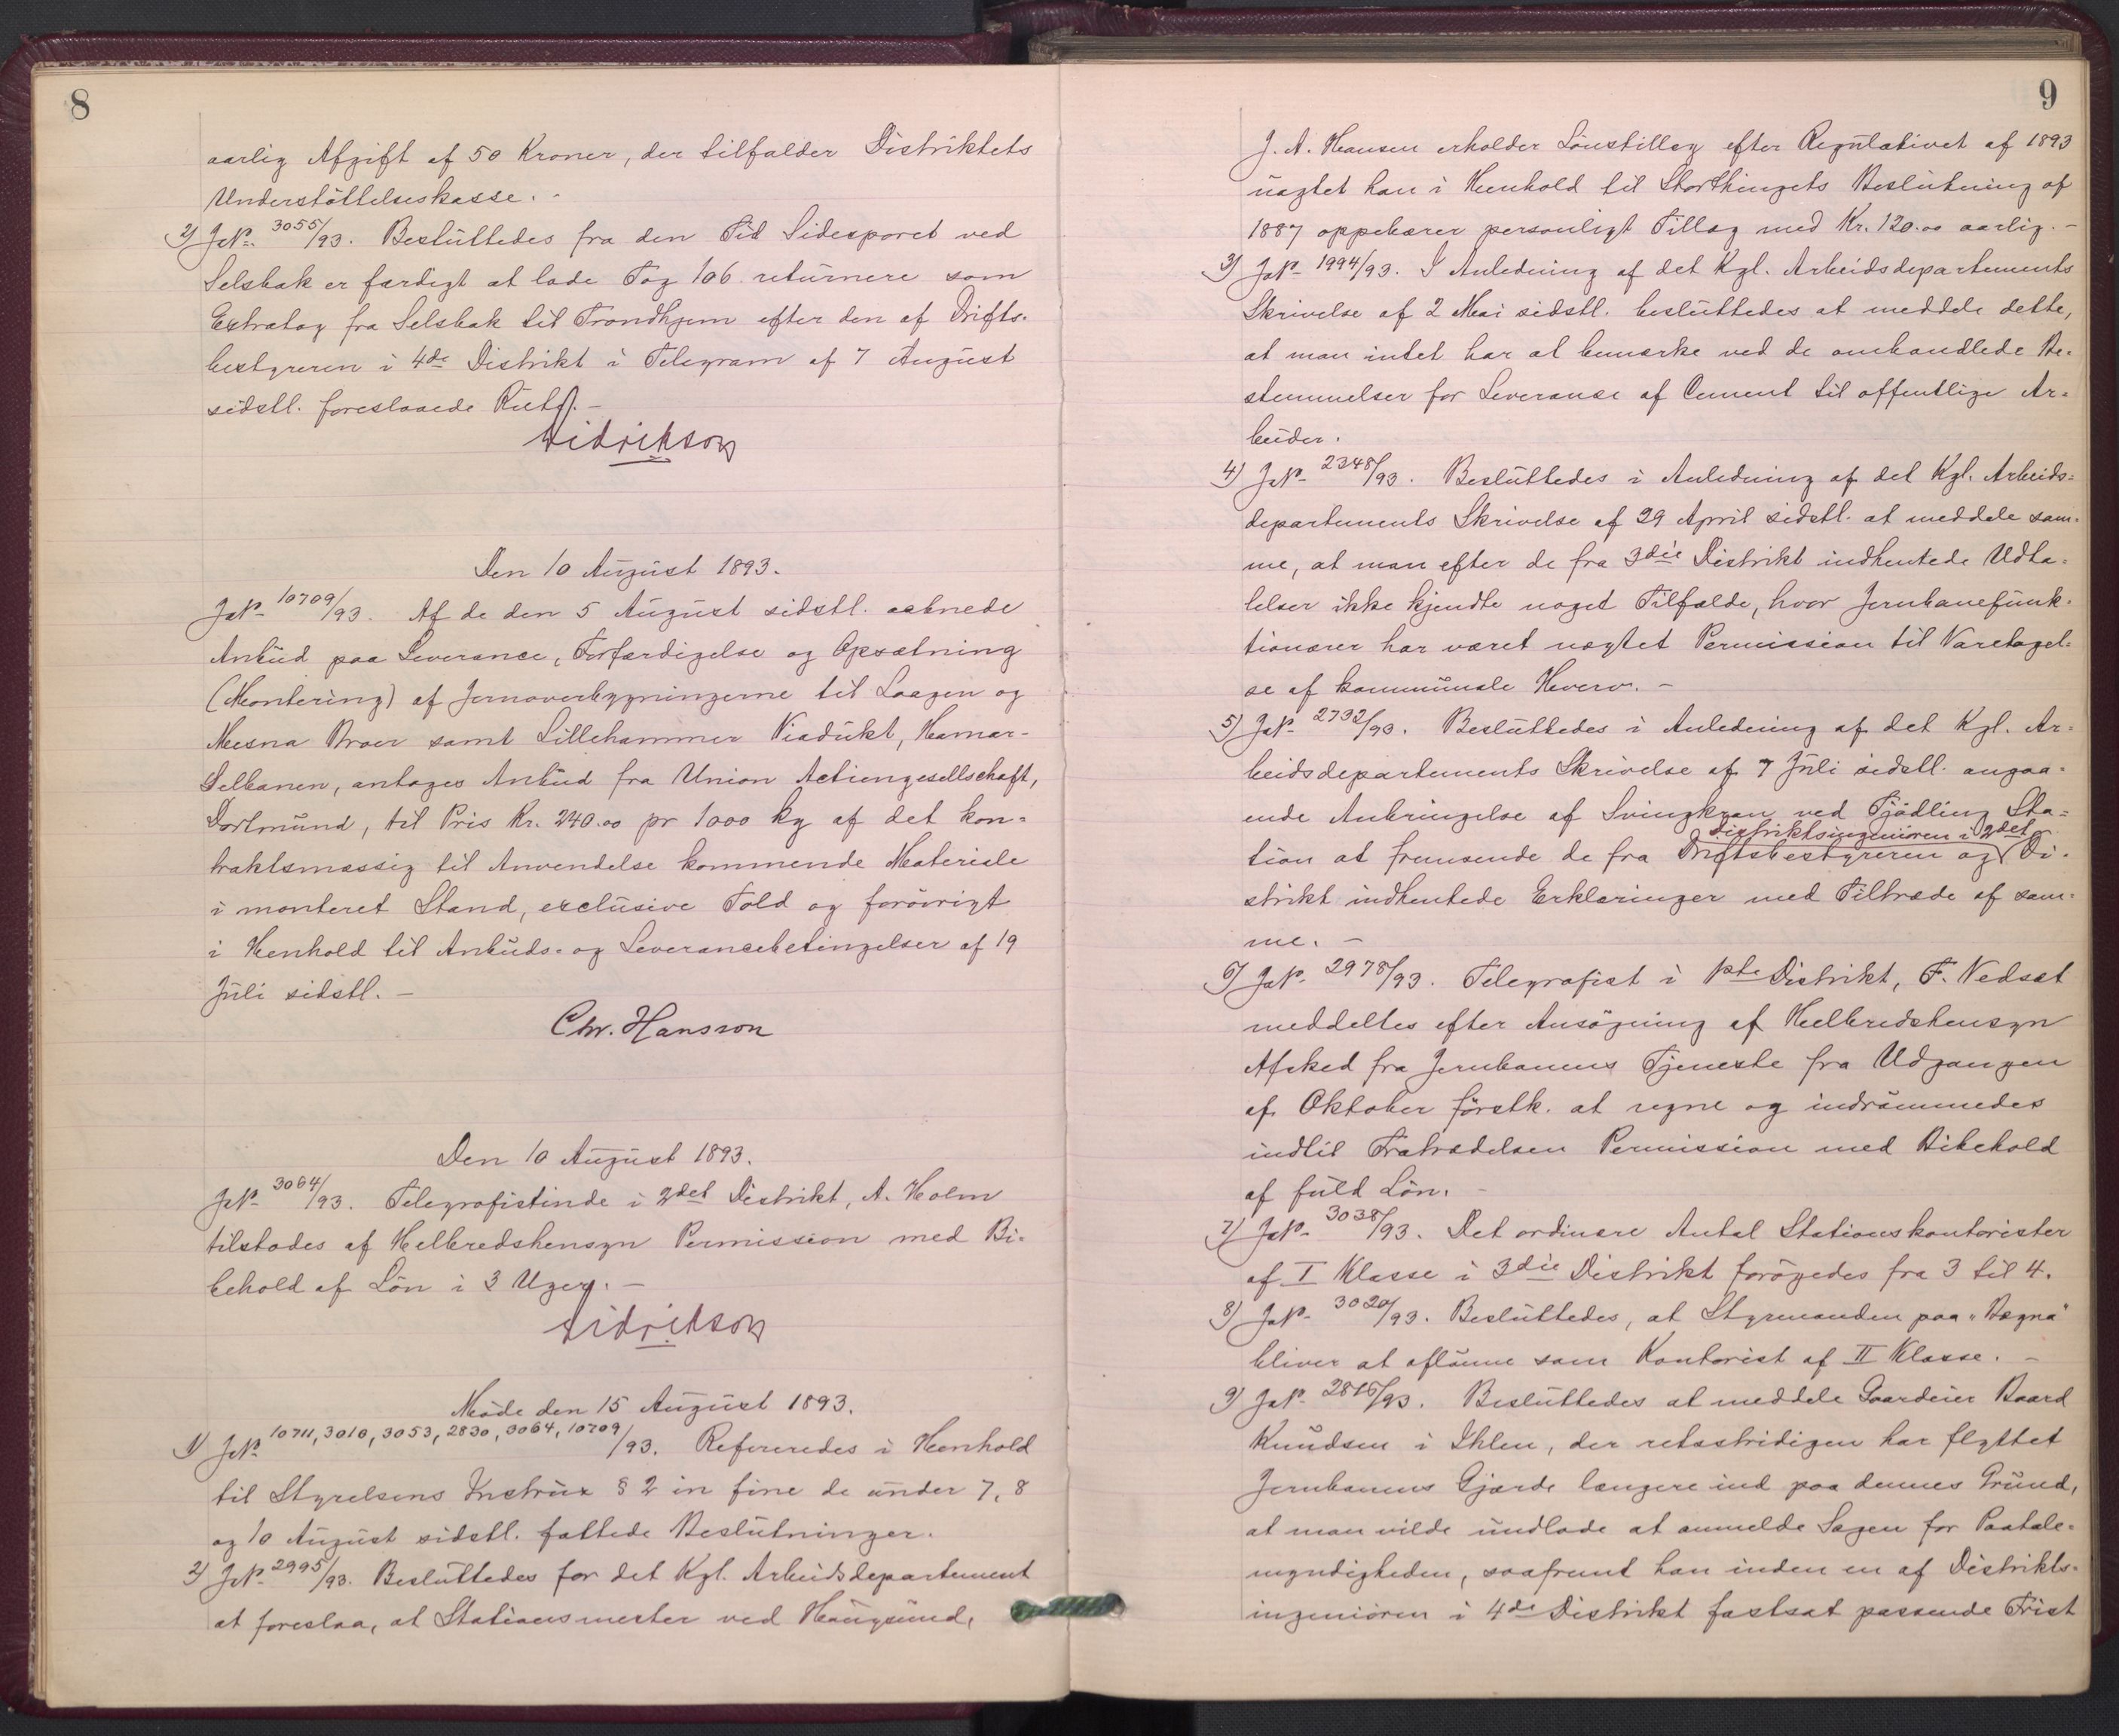 8
aarlig Afgift af 50 Kroner, der tilfalder Distriktets
Understöttelseskasse. -
2) JNo. 3055/93. Besluttedes fra den Tid Sidesporet ved
Selsbak er færdigt at lade Tog 106 returnere som
Extratog fra Selsbak til Trondhjem efter den af Drifts-
bestyreren i 4de Distrikt i Telegram af 7 August
sidstl. foreslaaede Rute. -
Didrikson
Den 10 August 1893.
JNo. 10709/93. Af de den 5 August sidstl. aabnede
Anbud paa Leverance, Forfærdigelse og Opsætning
(Montering) af Jernoverbygningerne til Laagen og
Mesna Broer samt Lillehammer Viadukt, Hamar-
Selbanen, antages Anbud fra Union Actiengesellschaft,
Dortmund, til Pris Kr. 240.00 pr 1000 kg af det kon-
traktsmæssig til Anvendelse kommende Materiale
i monteret Stand, exclusive Told og forövrigt
i Henhold til Anbuds- og Leverancebetingelser af 19
Juli sidstl. -
Chr. Hansson
Den 10 August 1893.
JNo. 3064/93. Telegrafistinde i 2det Distrikt, A. Holm
tilstodes af Helbredshensyn Permission med Bi-
behold af Lön i 3 Uger. -
Didrikson
Möde den 15 August 1893.
1) JNo. 10711, 3010, 3053, 2830, 3064, 10709/93. Refereredes i Henhold
til Styrelsens Instrux § 2 in fine de under 7, 8
og 10 August sidstl. fattede Beslutninger.
2) JNo. 2995/93. Besluttedes for det Kgl. Arbeidsdepartement
at foreslaa, at Stationsmester ved Hougsund,
9
J. A. Hansen erholder Lönstillæg efter Regulativet af 1893
uagtet han i Henhold til Storthingets Beslutning af
1887 oppebærer personligt Tillæg med Kr. 120.00 aarlig. -
3) JNo. 1994/93. I Anledning af det Kgl. Arbeidsdepartements
Skrivelse af 2 Mai sidstl. besluttedes at meddele dette,
at man intet har at bemærke ved de omhandlede Be-
stemmelser for Leveranse af Cement til offentlige Ar-
beider.
4) JNo. 2348/93. Besluttedes i Anledning af det Kgl. Arbeids-
departements Skrivelse af 29 April sidstl. at meddele sam-
me, at man efter de fra 3die Distrikt indhentede Udta-
lelser ikke kjendte noget Tilfælde, hvor Jernbanefunk-
tionærer har været nægtet Permission til Varetagel-
se af kommunale Hverv. -
5) JNo. 2732/93. Besluttedes i Anledning af det Kgl. Ar-
beidsdepartements Skrivelse af 7 Juli sidstl. angaa-
ende Anbringelse af Svingkran ved Tjödling Sta-
distriktsingeniören i 2det
tion at fremsende de fra Driftsbestyreren og Di-
strikt indhentede Erklæringer med Tiltræde af sam-
me. -
6) JNo. 2978/93. Telegrafist i 1ste Distrikt, F. Nedsat
meddeltes efter Ansögning af Helbredshensyn
Afsked fra Jernbanens Tjeneste fra Udgangen
af Oktober förstk. at regne og indrömmedes
indtil Fratrædelsen Permission med Bibehold
af fuld Lön. -
7) JNo. 3038/93. Det ordinære Antal Stationskontorister
af I Klasse i 3die Distrikt forögedes fra 3 til 4.
8) JNo. 3020/93. Besluttedes, at Styrmanden paa "Bægna"
bliver at aflönne som Kontorist af II Klasse. -
9) JNo. 2816/93. Besluttedes at meddele Gaardeier Baard
Knudsen i Ihlen, der retsstridigen har flyttet
Jernbanens Gjærde længere ind paa dennes Grund,
at man vilde undlade at anmelde Sagen for Paatale-
myndigheden, saafremt han inden en af Distrikts-
ingeniören i 4de Distrikt fastsat passende Frist